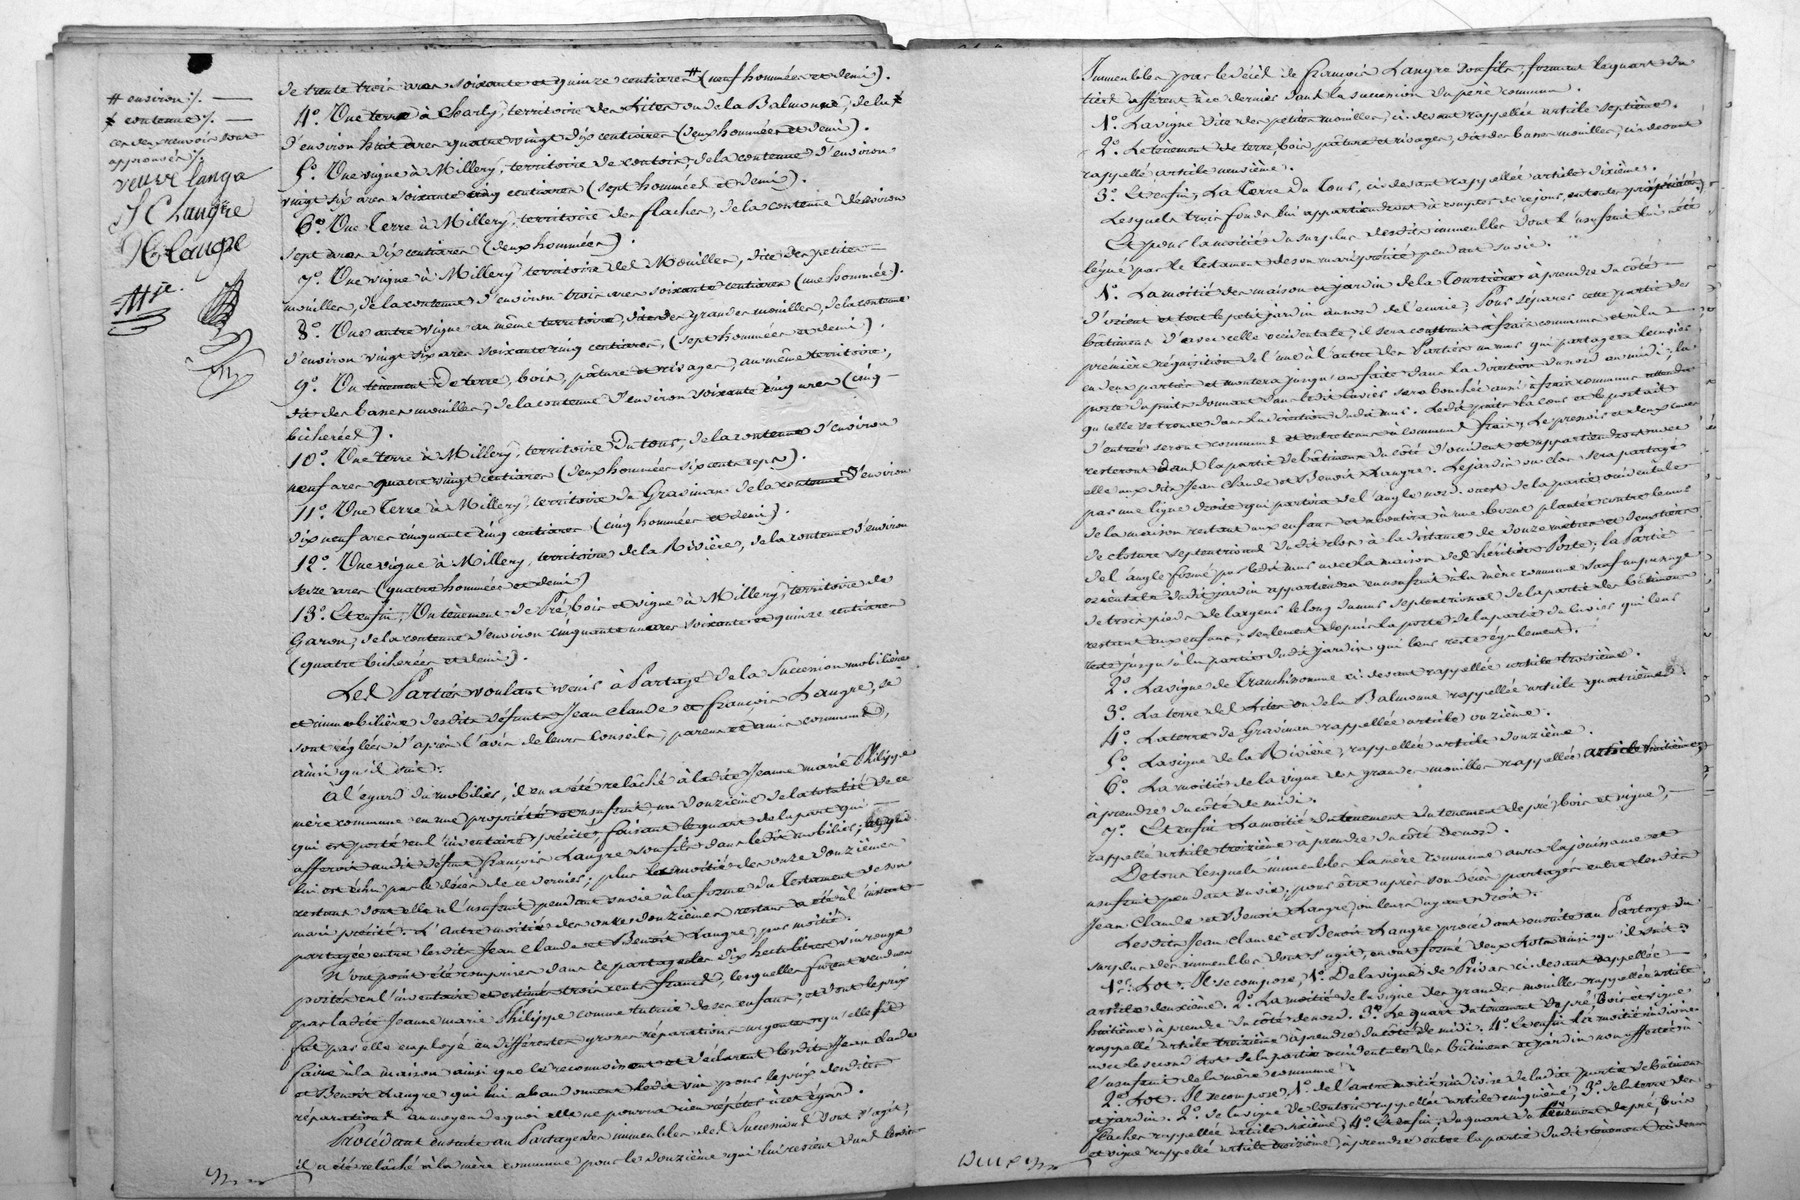 # environ ./. —
≠ contenue ./. —
ces deux renvois sont
approuvés ./.
veuve langre
J C Langre
B Langre
de trente trois ares soixante et quinze centiares # (neuf hommées et demi).
4º. Une terre à Charly, territoire des Lites ou de la Balmonne, de la ≠
d'environ huit ares quatre vingt dix centiares (deux hommées et demi).
5º. Une vigne à Millery, territoire de coutois, de la contenue d'environ
vingt six ares soixante cinq centiares (sept hommées et demi).
6º. Une Terre à Millery, territoire des flaches, de la contenue d'environ
sept ares dix centiares (deux hommées).
7º. Une vigne à Millery, territoire des Mouilles, dite des petites
mouilles, de la contenue d'environ trois ares soixante centiares (une hommée).
8º. Une autre vigne au même territoire, dite des grandes mouilles, de la contenue
d'environ vingt six ares soixante cinq centiares, (sept hommées et demi).
9º. Un tènement de terre, bois, pâture et rivages, au même territoire,
dit des basses mouilles, de la contenue d'environ soixante cinq ares (cinq
bicherées).
10º. Une terre à Millery, territoire du tous, de la contenue d'environ
neuf ares quatre vingt centiares (deux hommées six cents seps).
11º. Une Terre à Millery, territoire du Gravinan de la contenue d'environ
dix neuf ares cinquante cinq centiares (cinq hommées et demi).
12º. Une vigne à Millery, territoire de la Rivière, de la contenue d'environ
seize ares (quatre hommées et demi)
13º. Et enfin, Un tènement de Pré, bois et vigne à Millery, territoire de
Garon, de la contenue d'environ cinquante un ares soixante et quinze centiares
(quatre bicherées et demi).
Les Parties voulant venir à Partage de la Succession mobilière
et immobilière desdits défunts Jean Claude et françois Langre, se
sont réglées d'après l'avis de leurs Conseils, parens et amis communs,
ainsi qu'il suit.
A l'egard du mobilier, il en a été relâché à ladite Jeanne marie Philippe
mère commune en une propriété et usufruit, un douzième de la totalité de ce
qui est porté en l'inventaire précité, faisant le quart de la part qui
afferoit audit défunt François Langre son fils dans ledit mobilier, et qui
lui est échu par le décès de ce dernier; plus la moitié des onze douzièmes
restans dont elle a l'usufruit pendant sa vie à la forme du Testament de son
mari précité. L'autre moitié des onze douzièmes restans a été à l'instant
partagée entre lesdits Jean Claude et Benoît Langre, par moitié.
N'ont point été comprises dans le partage les dix hectolitres vin rouge
portés en l'inventaire et estimés trois cents francs, lesquelles furent vendues
par ladite Jeanne marie Philippe comme tutrice de ses enfans, et dont le prix
fut par elle employé en différentes grosses réparations urgentes qu'elle fit
faire à la maison ainsi que le reconnoissent et déclarent lesdits Jean Claude
et Benoît Langre qui lui abandonnent ledit vin pour le prix desdites
réparations au moyen de quoi elle ne pourra rien répéter à cet égard.
Procédant ensuite au Partage des immeubles des Successions dont s'agit,
il a été relâché à la mère commune pour le douzième qui lui revient dans lesdits
Immeubles par le décès de françois Langre son fils, formant le quart du
tiers afférent à ce dernier dans la succession du père commun.
1º. La vigne dite des petites mouilles, ci devant rappellée article septième.
2º. Le tènement de terre, bois, pâture et rivages, dit des basses mouilles, ci devant
rappellé article neuvième.
3º. Et enfin, La Terre du Tous, ci devant rappellée article dixième.
Lesquels trois fonds lui appartiendront à compter de ce jour, en toute propriété.
Et pour la moitié du surplus desdits immeubles dont l'usufruit lui a été
légué par le testament de son mari précité, pendant sa vie.
1º. La moitié des maison et jardin de la Tourtière à prendre du côté
d'orient et tout le petit jardin au nord de l'écurie; Pour séparer cette partie des
bâtimens d'avec celle occidentale, il sera construit à frais communs et à la
première réquisition de l'une à l'autre des Parties un mur qui partagera l'évier
en deux parties et montera jusqu'au faîte dans la direction du nord au midi; la
porte du fruit donnant dans ledit évier sera bouchée aussi à frais communs attendu
qu'elle se trouve dans la direction dudit mur. Ledit puits la cour et le portail
d'entrée seront communs et entretenus à communs frais, Le pressoir et deux cuves
resteront dans la partie de bâtimens du côté d'occident et appartiendront avec
elle aux dits Jean Claude et Benoît Langre. Le jardin ou clos sera partagé
par une ligne droite qui partira de l'angle nord-ouest de la partie occidentale
de la maison restant aux enfans et aboutira à une borne plantée contre le mur
de cloture septentrional dudit clos à la distance de douze mètres et demi
de l'angle formé par ledit mur avec la maison des héritiers Poste; la Partie
orientale dudit jardin appartiendra en usufruit à la mère commune sauf un passage
de trois pieds de largeur le long du mur septentrional de la partie des bâtimens
restant aux enfans, seulement depuis la porte de la partie du cuvier qui leur
reste jusqu'à la partie dudit jardin qui leur reste également.
2º. La vigne de Tranchissonne ci devant rappellée article troisième.
3º. La terre des Lites ou de la Balmonne rappellée article quatrième.
4º. La terre de Gravinan rappellée article onzième.
5º. La vigne de la Rivière, rappellée article douzième.
6º. La moitié de la vigne des grandes mouilles rappellée article huitième
à prendre du côté de midi.
7º. Et enfin la moitié du tènement du tènement de pré, bois et vigne,
rappellé article treizième à prendre du côté de nord.
De tous lesquels immeubles la mère commune aura la jouissance et
usufruit pendant sa vie, pour être après son décès partagés entre lesdits
Jean Claude et Benoît Langre, ou leurs ayant droit.
Lesdits Jean Claude et Benoît Langre procédant ensuite au Partage du
surplus des immeubles dont s'agit, en ont formé deux Lots ainsi qu'il suit:
1er. Lot. Il se compose, 1º. De la vigne de Privas ci devant rappellée
article deuxième. 2º. La moitié de la vigne des grandes mouilles rappellée article
huitième à prendre du côté de nord. 3º. Le quart du tènement de pré, Bois et vigne
rappellé article treizième à prendre du côté de midi. 4º. Et enfin la moitié indivise
avec le second Lot de la partie occidentale des bâtimens et jardin non affectés à
l'usufruit de la mère commune.
2e. Lot. Il se compose, 1º. de l'autre moitié indivise de ladite partie de bâtimens
et jardin. 2º. de la vigne de Coutois rappellée article cinquième, 3º. de la terre des
flaches rappellée article sixième; 4º. Et enfin, du quart du tènement de pré, bois
et vigne rappellé article treizième, à prendre entre la partie dudit tènement